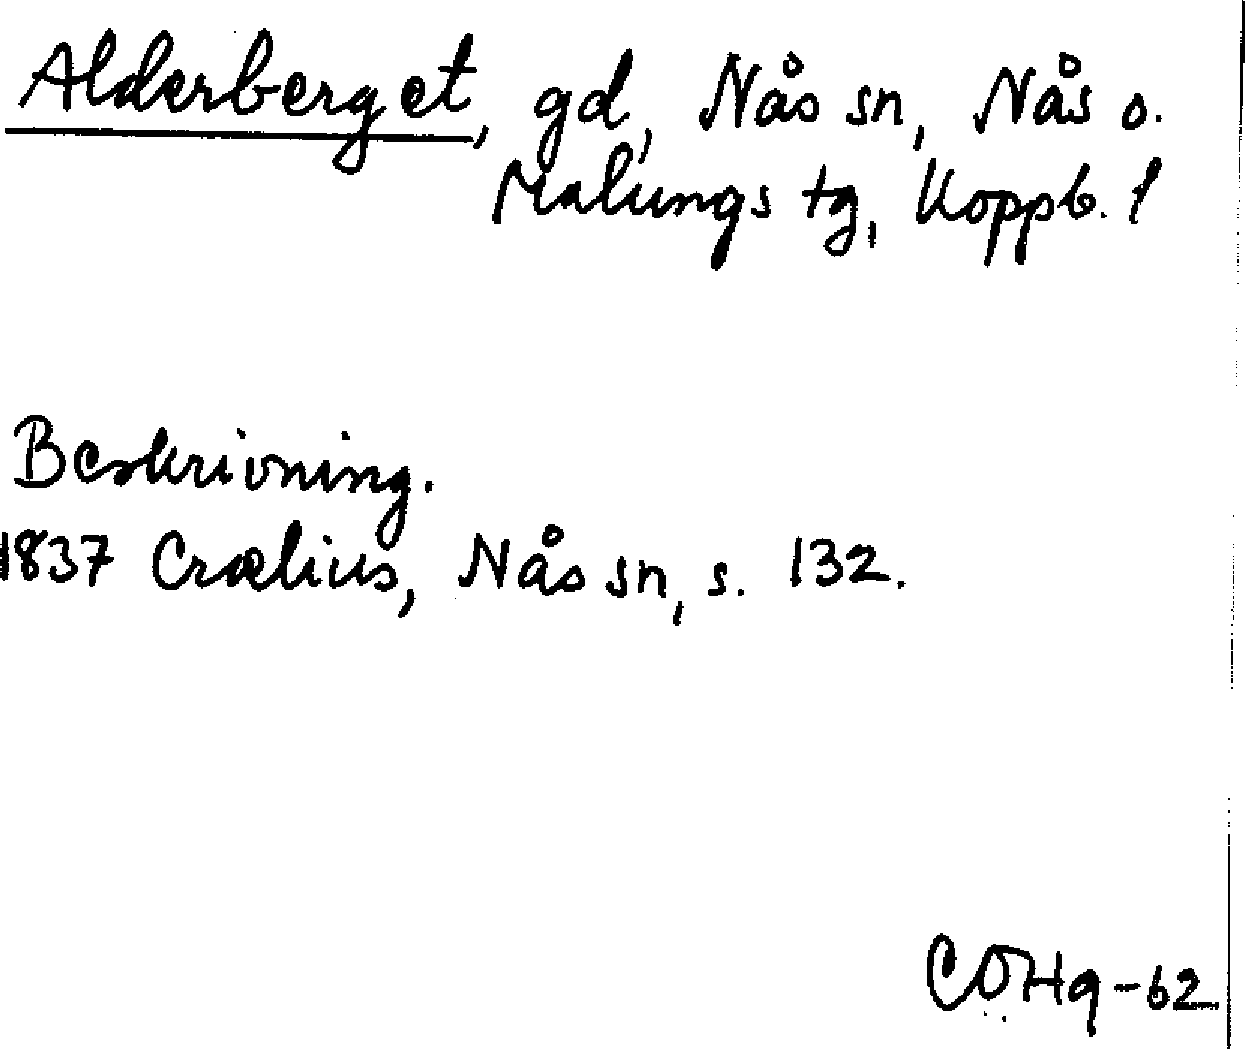 Alderberget, gd, Nås sn, Nås o.
Malungs tg, Koppb. l
Beskrivning.
1837 Crælius, Nås sn, s. 132.
COHq-62